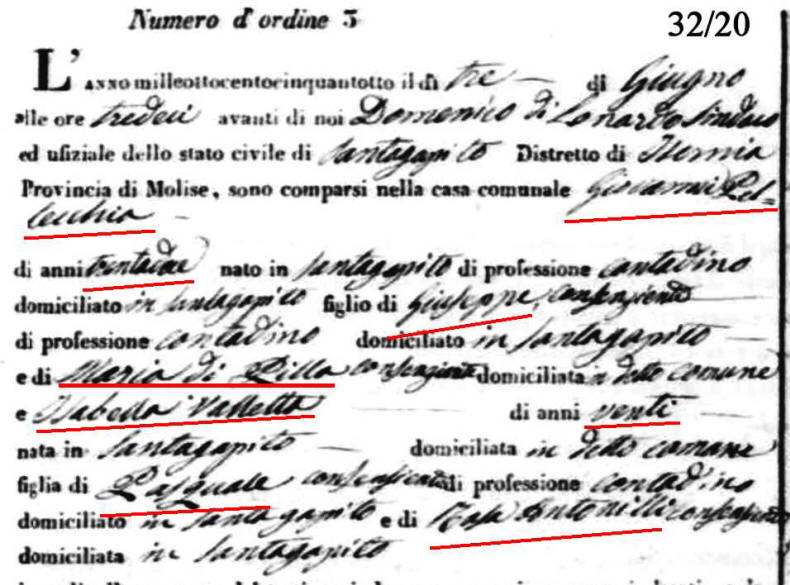 Numero d'ordine 3
32/20
L'ANNO milleottocentocinquantotto il dì tre di Giugno
alle ore tredici avanti di noi Domenico di Lonardo Sindaco
ed ufiziale dello stato civile di Santagapito Distretto di Isernia
Provincia di Molise, sono comparsi nella casa comunale Giovanni Pel=
lecchia
di anni trentadue nato in Santagapito di professione contadino
domiciliato in Santagapito figlio di Giuseppe, consenziente
di professione contadino domiciliato in Santagapito
e di Maria di Pilla consenziente domiciliata in detto comune
e Isabella Valletta di anni venti
nata in Santagapito domiciliata in detto comune
figlia di Pasquale consenziente di professione contadino
domiciliato in Santagapito e di Rosa Antonilli consenziente
domiciliata in Santagapito